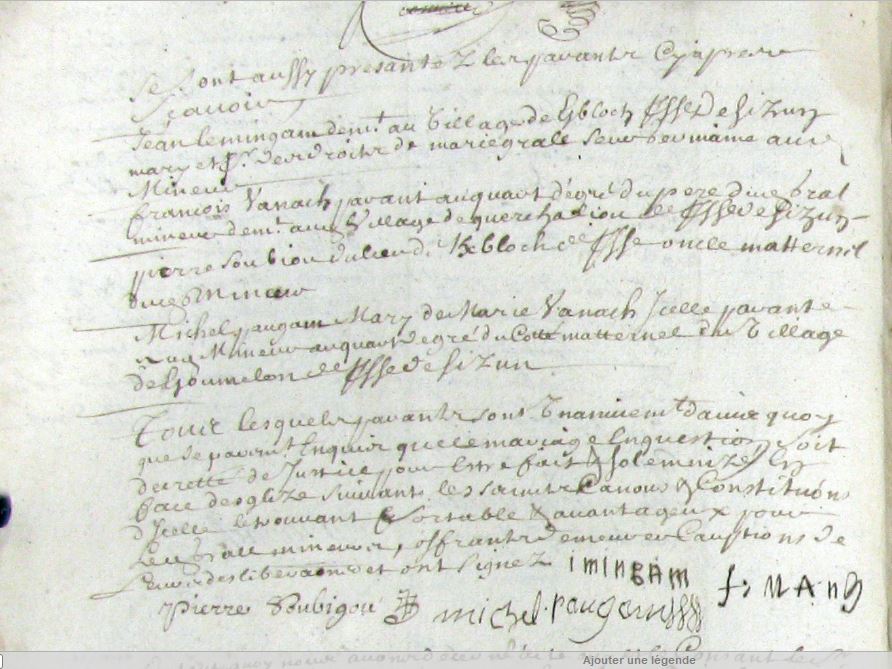 Se sont aussy presantez les parants cy apres
Scavoir
Jean Lemingam dem.t au village de Kbloch ppsse de Sizun
mary et p.r des droits de marie grall seur germaine aux
Mineur
francois Vanach parant au quart degré du pere dud. bral
mineur dem.t au village de querchaliou de ppsse de Sizun
pierre Soubigou du lieu de Kbloch de ppsse oncle matternel
dud. Mineur
Michel paugam Mary de Marie Vanach Icelle parante
au Mineur au quart degré du Cotté matternel du Village
de Goumelon de ppsse de Sizun
Tous lesquels parants sont Unanimem.t d'avis quoy
que le parant Enquis que le mariage En question soit
decretté de Justice pour Estre fait & solemnizé En
face desglize Suivant les saints Canons & Constitutions
d'Icelle le trouvant Sortable & avantageux pour
led. mineur, offrants demeurer Cautions de
Leurs deliberaons et ont signez iminGAM f: MANG
Pierre Soubigou michel. paugam
Ajouter une légende